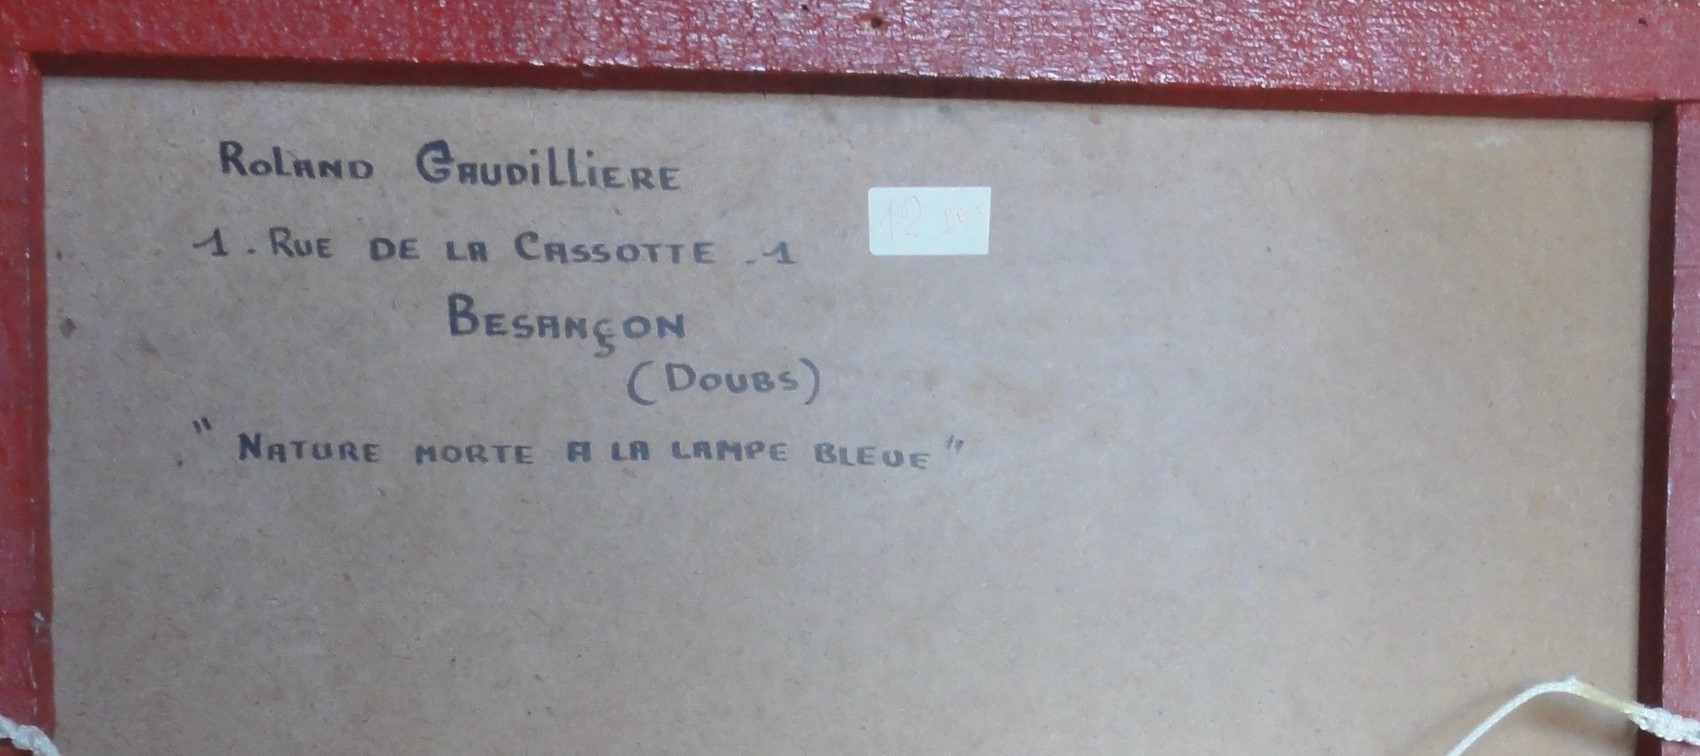 Roland Gaudilliere
1. Rue de la Cassotte .1
Besançon
(Doubs)
"Nature morte a la lampe bleue"
12